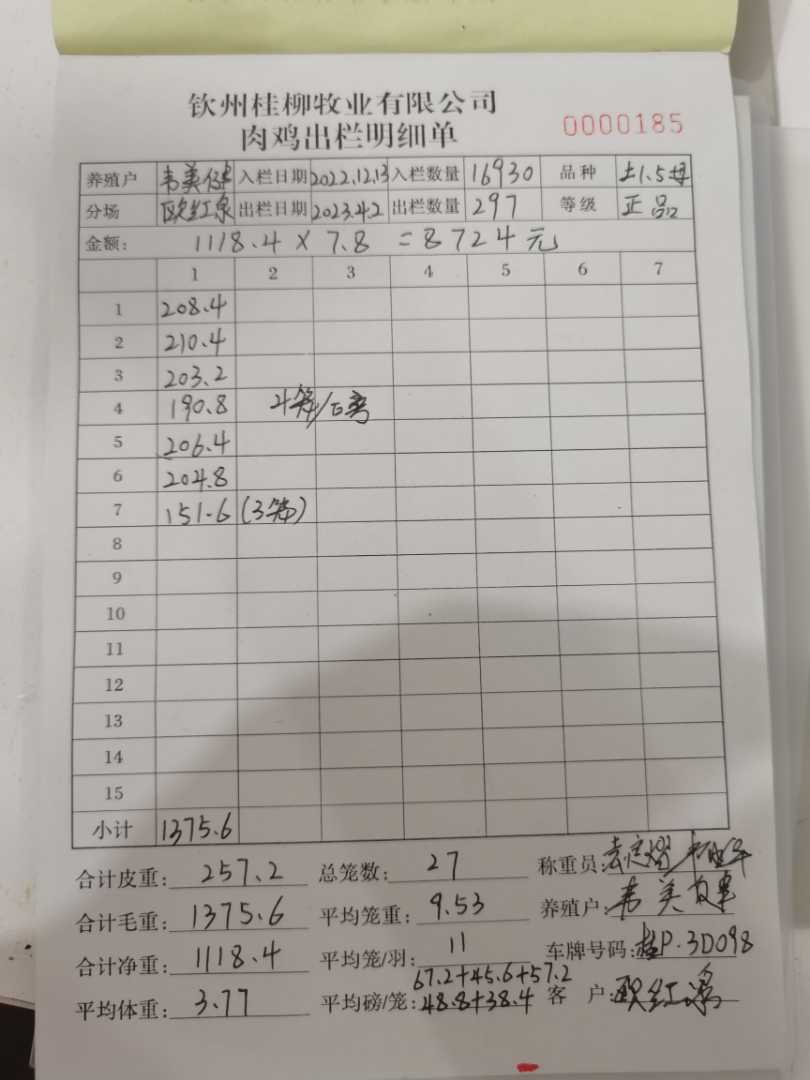 钦州桂柳牧业有限公司
肉鸡出栏明细单 0000185
养殖户 韦美 入栏日期 2022.12.13 入栏数量 16930 品种 土1.5母
分场 欧红泉 出栏日期 2023.4.2 出栏数量 297 等级 正品
金额: 1118.4 × 7.8 = 8724元
1 2 3 4 5 6 7
1 208.4
2 210.4
3 203.2
4 190.8 4笼/
5 206.4
6 204.8
7 151.6 (3笼)
8
9
10
11
12
13
14
15
小计 1375.6
合计皮重: 257.2 总笼数: 27 称重员:
合计毛重: 1375.6 平均笼重: 9.53 养殖户: 韦美
合计净重: 1118.4 平均笼/羽: 11 车牌号码: 桂P·3D098
67.2+45.6+57.2
平均体重: 3.77 平均磅/笼: 48.8+38.4 客户: 欧红泉